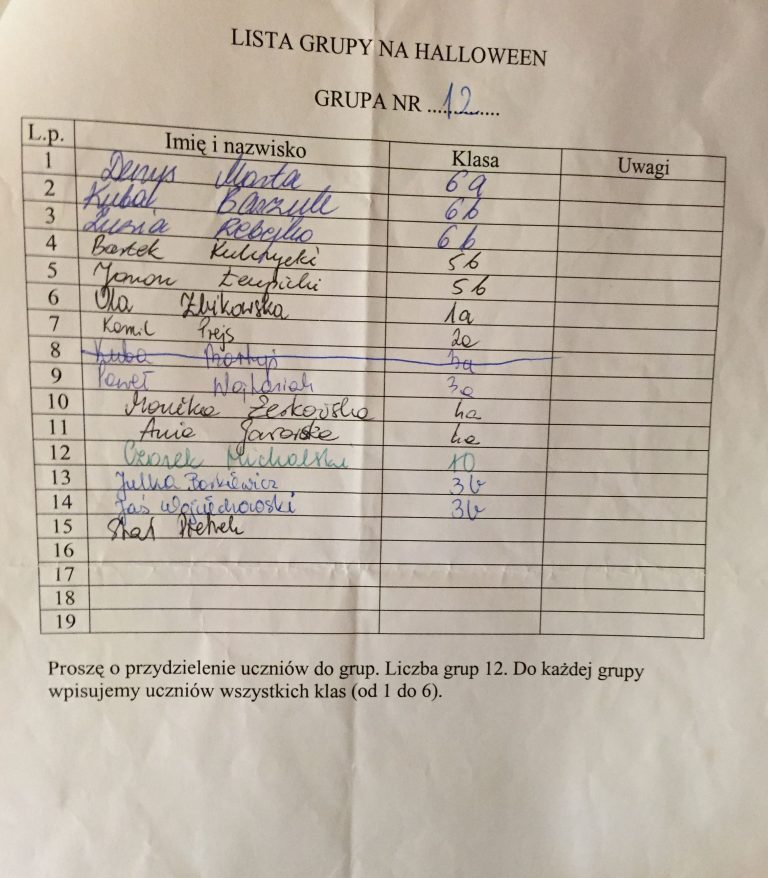 LISTA GRUPY NA HALLOWEEN
GRUPA NR ....12....
L.p. Imię i nazwisko Klasa Uwagi
1 Denys Marta 6a
2 Kuba Barzyk 6b
3 Zuzia Rebejko 6b
4 Bartek 5b
5 5b
6 Ola Żbikowska 1a
7 Kamil Prejs 2a
8 Kuba 3a
9 Paweł 3a
10 Monika 4a
11 Ania 4a
12 Czarek Michalski
13 Julka 3b
14 Jaś Wojciechowski 3b
15 Staś
16
17
18
19
Proszę o przydzielenie uczniów do grup. Liczba grup 12. Do każdej grupy
wpisujemy uczniów wszystkich klas (od 1 do 6).